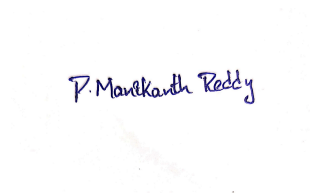 P. Manikanth Reddy